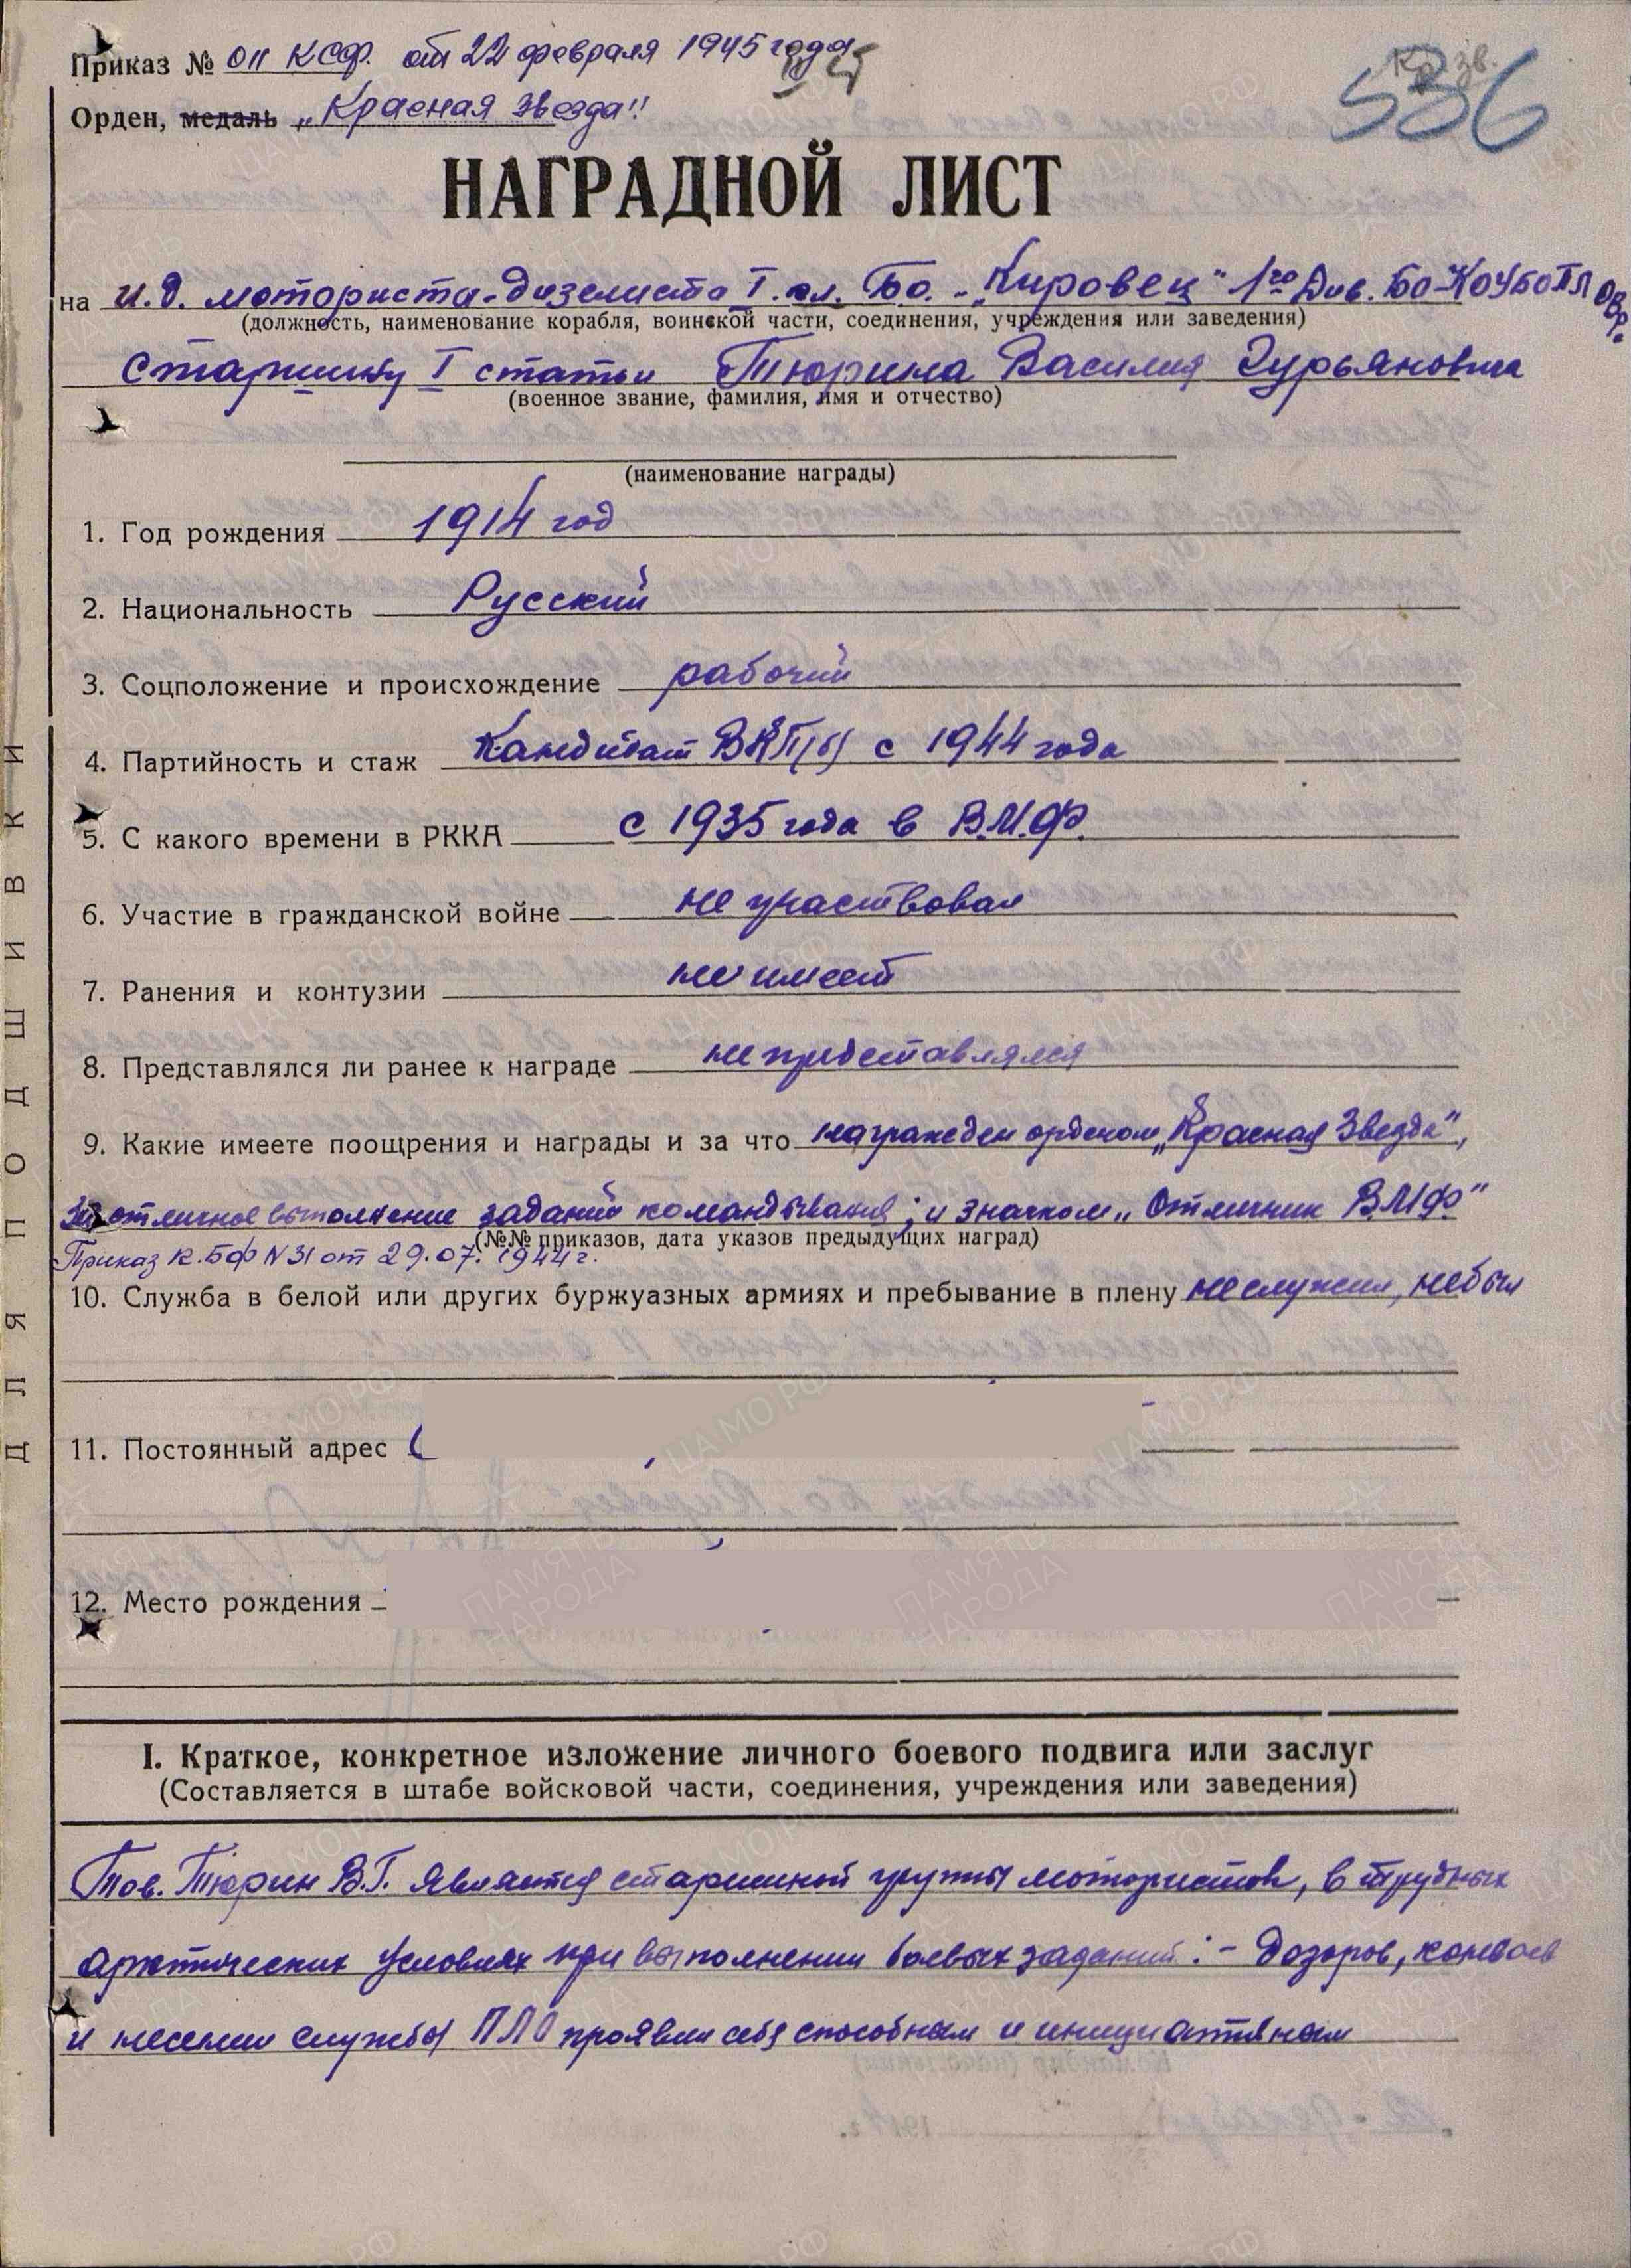 Приказ № 011 КСФ. от 22 февраля 1945 года
Орден, медаль „Красная звезда"
Кр. зв.
536
НАГРАДНОЙ ЛИСТ
на и.д. моториста-дизелиста I. кл. БО. „Кировец" 1го Див. БО КОУБОПЛ ОВР.
(должность, наименование корабля, воинской части, соединения, учреждения или заведения)
старшину I статьи Тюрина Василия Гурьяновича
(военное звание, фамилия, имя и отчество)
(наименование награды)
1. Год рождения 1914 год
2. Национальность Русский
3. Соцположение и происхождение рабочий
4. Партийность и стаж Кандидат ВКП(б) с 1944 года
5. С какого времени в РККА с 1935 года в В.М.Ф.
6. Участие в гражданской войне не участвовал
7. Ранения и контузии не имеет
8. Представлялся ли ранее к награде не представлялся
9. Какие имеете поощрения и награды и за что награжден орденом „Красная Звезда",
за отличное выполнение заданий командования; и значком „Отличник ВМФ"
(№№ приказов, дата указов предыдущих наград)
Приказ К.БФ N 31 от 29.07.1944 г.
10. Служба в белой или других буржуазных армиях и пребывание в плену не служил, не был
11. Постоянный адрес
12. Место рождения
I. Краткое, конкретное изложение личного боевого подвига или заслуг
(Составляется в штабе войсковой части, соединения, учреждения или заведения)
Тов. Тюрин В.Г. является старшиной группы мотористов, в трудных
арктических условиях при выполнении боевых заданий: - дозоров, конвоев
и несении службы ПЛО проявил себя способным и инициативным
ДЛЯ ПОДШИВКИ